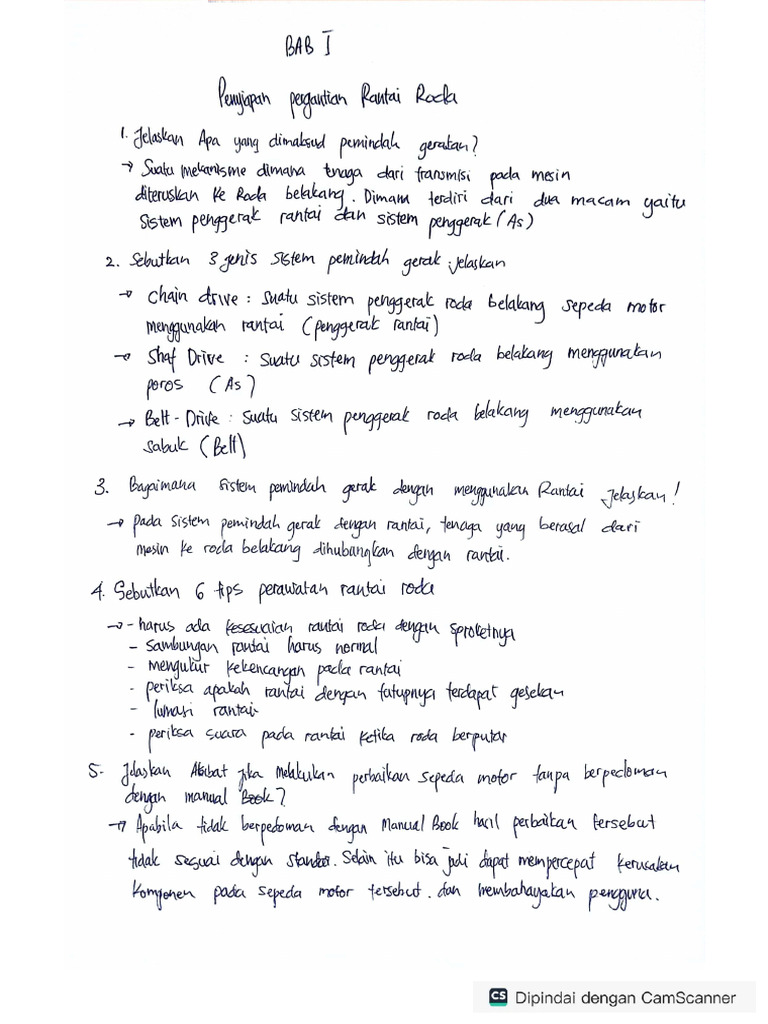 BAB I
Penyiapan pergantian Rantai Roda
1. Jelaskan Apa yang dimaksud pemindah geratan?
→ Suatu mekanisme dimana tenaga dari transmisi pada mesin
diteruskan ke Roda belakang. Dimana terdiri dari dua macam yaitu
sistem penggerak rantai dan sistem penggerak (As)
2. Sebutkan 3 jenis sistem pemindah gerak jelaskan
→ Chain drive : Suatu sistem penggerak roda belakang sepeda motor
menggunakan rantai (penggerak rantai)
→ Shaf Drive : Suatu sistem penggerak roda belakang menggunakan
poros (As)
→ Belt-Drive : Suatu sistem penggerak roda belakang menggunakan
sabuk (Belt)
3. Bagaimana sistem pemindah gerak dengan menggunakan Rantai Jelaskan!
→ pada sistem pemindah gerak dengan rantai, tenaga yang berasal dari
mesin ke roda belakang dihubangkan dengan rantai.
4. Sebutkan 6 tips perawatan rantai roda
→ - harus ada kesesuaian rantai roda dengan sproketnya
- Sambungan rantai harus normal
- mengukur kekencangan pada rantai
- periksa apakah rantai dengan tutupnya terdapat gesekan
- lumasi rantai
- periksa suara pada rantai ketika roda berputar
5- Jelaskan Akibat jika melakukan perbaikan sepeda motor tanpa berpedoman
dengan manual Book?
→ Apabila tidak berpedoman dengan Manual Book hasil perbaikan tersebut
tidak sesuai dengan standar. Selain itu bisa jadi dapat mempercepat kerusakan
komponen pada sepeda motor tersebut. dan membahayakan pengguna.
CS Dipindai dengan CamScanner